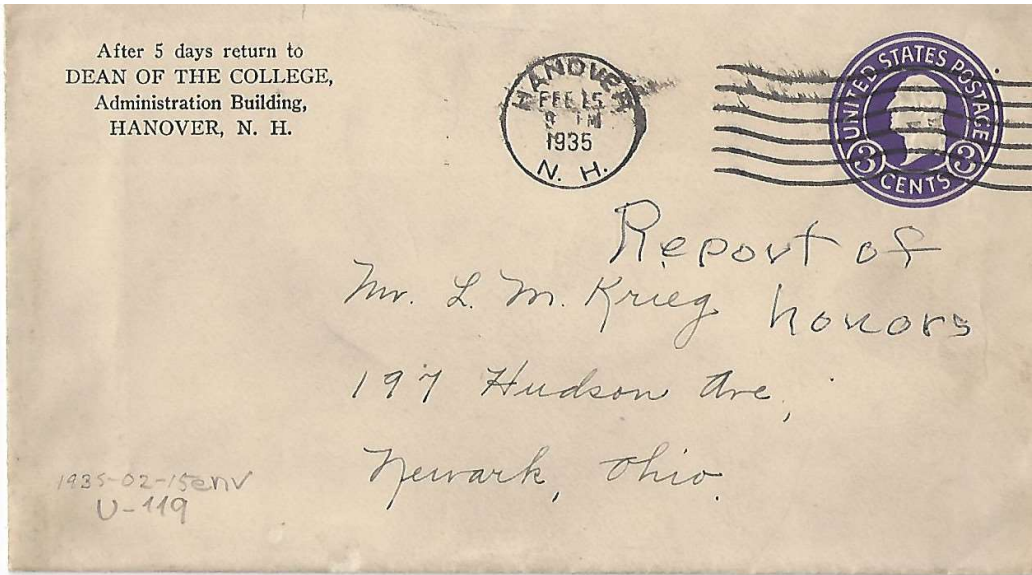 After 5 days return to
DEAN OF THE COLLEGE,
Administration Building,
HANOVER, N. H.
HANOVER
FEB 15
9 M
1935
N. H.
UNITED STATES POSTAGE
3 CENTS 3
Report of
honors
Mr. L. M. Krieg
197 Hudson Ave,
Newark, Ohio.
1935-02-15env
U-119